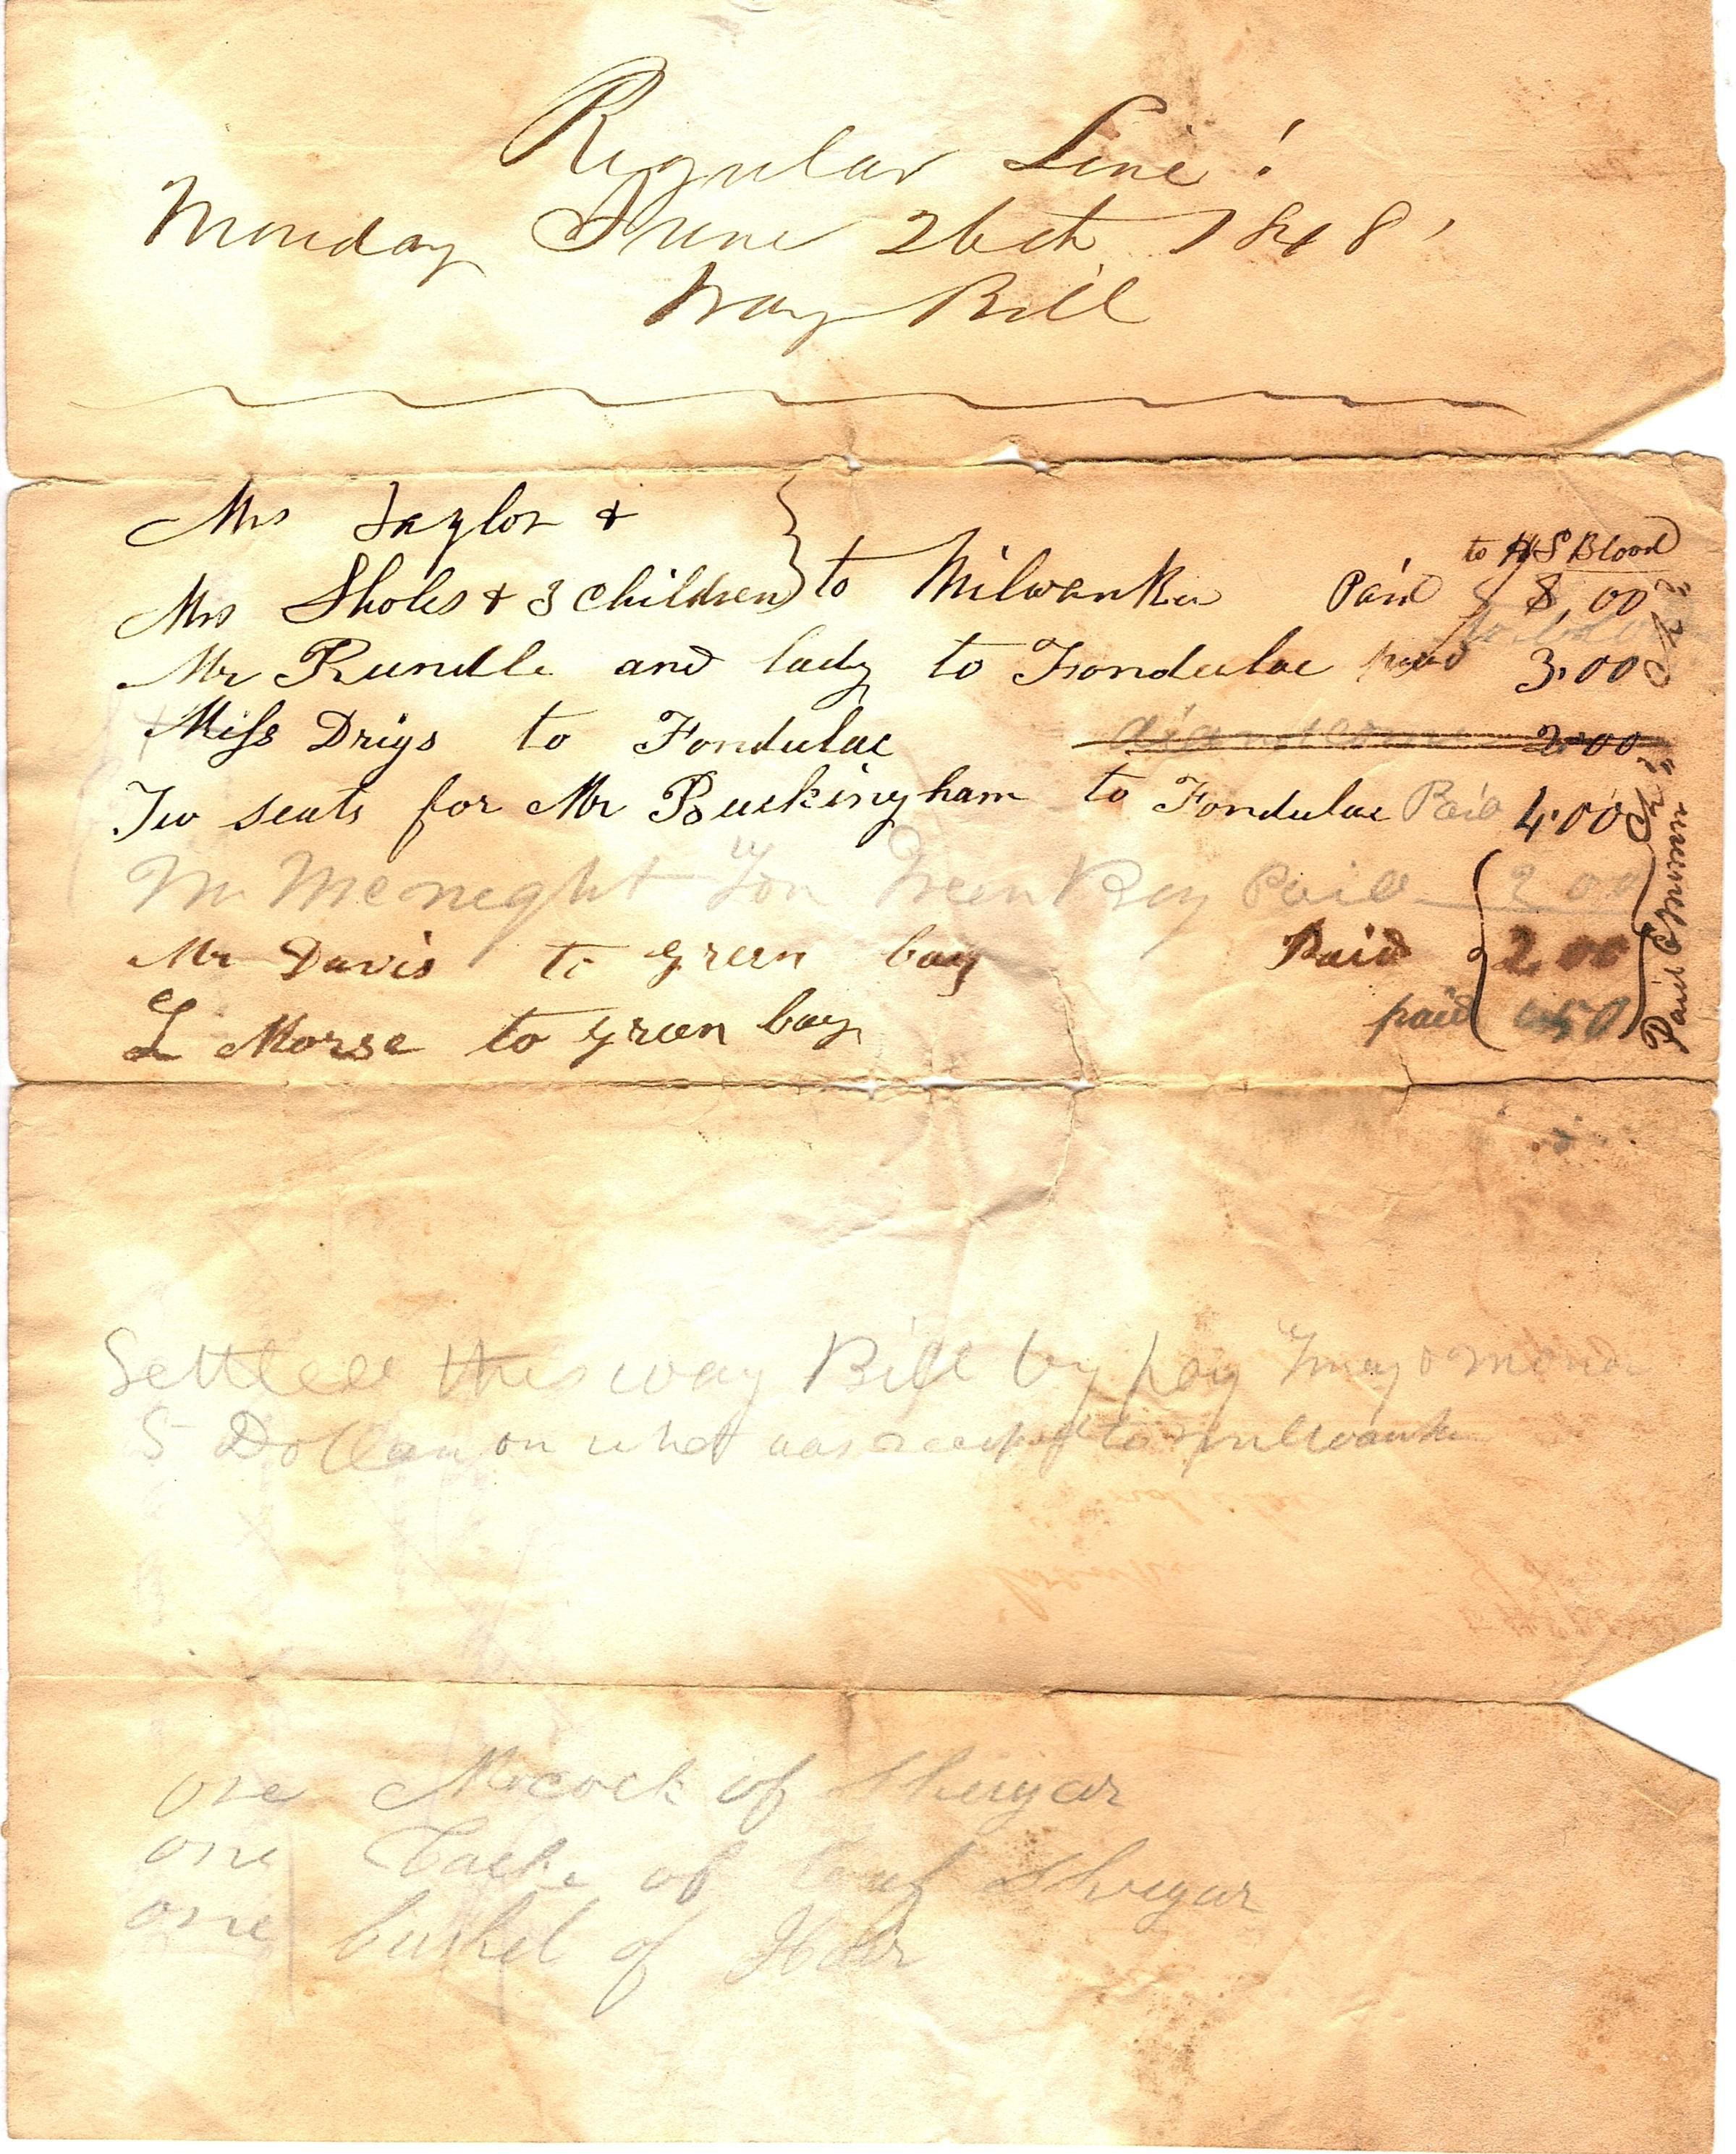 Regular Line!
Monday June 26th 1848
Way Bill
Mrs Taylor +
to HS Blood
Mrs Sholes + 3 children } to Milwaukee Paid $8,00
Mr Rundle and lady to Fondulac paid 3.00
Miss Drigs to Fondulac 2.00
Two seats for Mr Buckingham to Fondulac Paid 4.00
Mr Mcneght for Green Bay Paid 2 00
Mr Davis to green bay Paid 2.00
L Morse to green bay paid 50
Paid
Settled this way Bill by pay
5 Dollars on what was to milwauke
one Mocock of Shugar
one of loaf Shugar
one bushel of